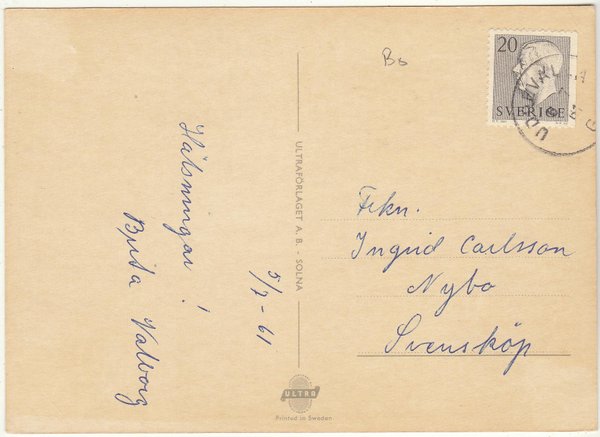 Hälsningar!
Brita Valborg
5/7-61
ULTRAFÖRLAGET A. B. - SOLNA
ULTRA
Printed in Sweden
Bo
20
SVERIGE
UDDEVALLA
Frkn.
Ingrid Carlsson
Nybo
Svensköp